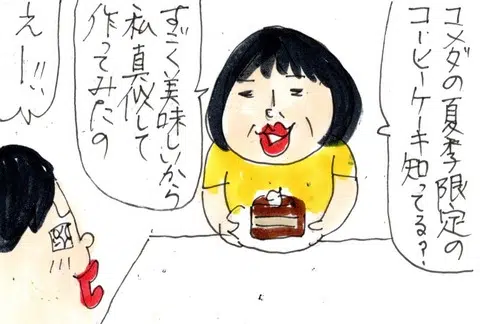 コメダの夏季限定の
コーヒーケーキ知ってる?
すごく美味しいから
私真似して
作ってみたの
えー!!